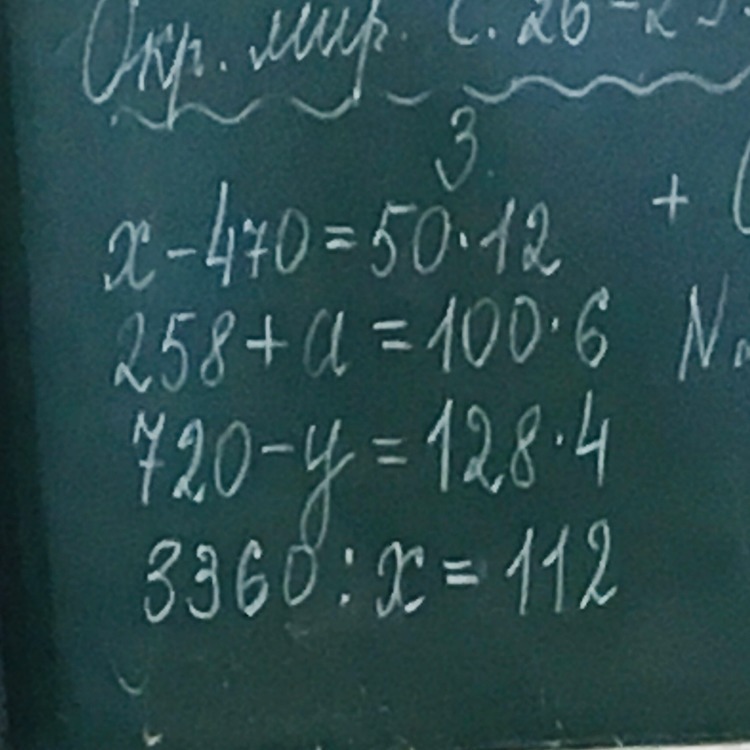 Окр. мир. С. 26-2
3.
x-470=50·12
258+a=100·6
720-y=128·4
3360:x=112
+
N